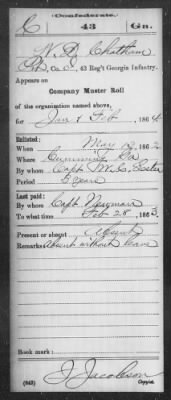 Confederate.
C 43 Ga.
Chatham
Co. C, 43 Reg't Georgia Infantry.
Appears on
Company Muster Roll
of the organization named above,
for Jan & Feb, 1864
Enlisted:
When May 10, 1862
Where Cumming Ga
By whom Capt. W. C. Lester
Period 3 years
Last paid:
By whom Capt. Neyman
To what time Feb 28, 1863
Present or absent Absent
Remarks: Absent without leave
Book mark:
(642) J Jacobson
Copyist.